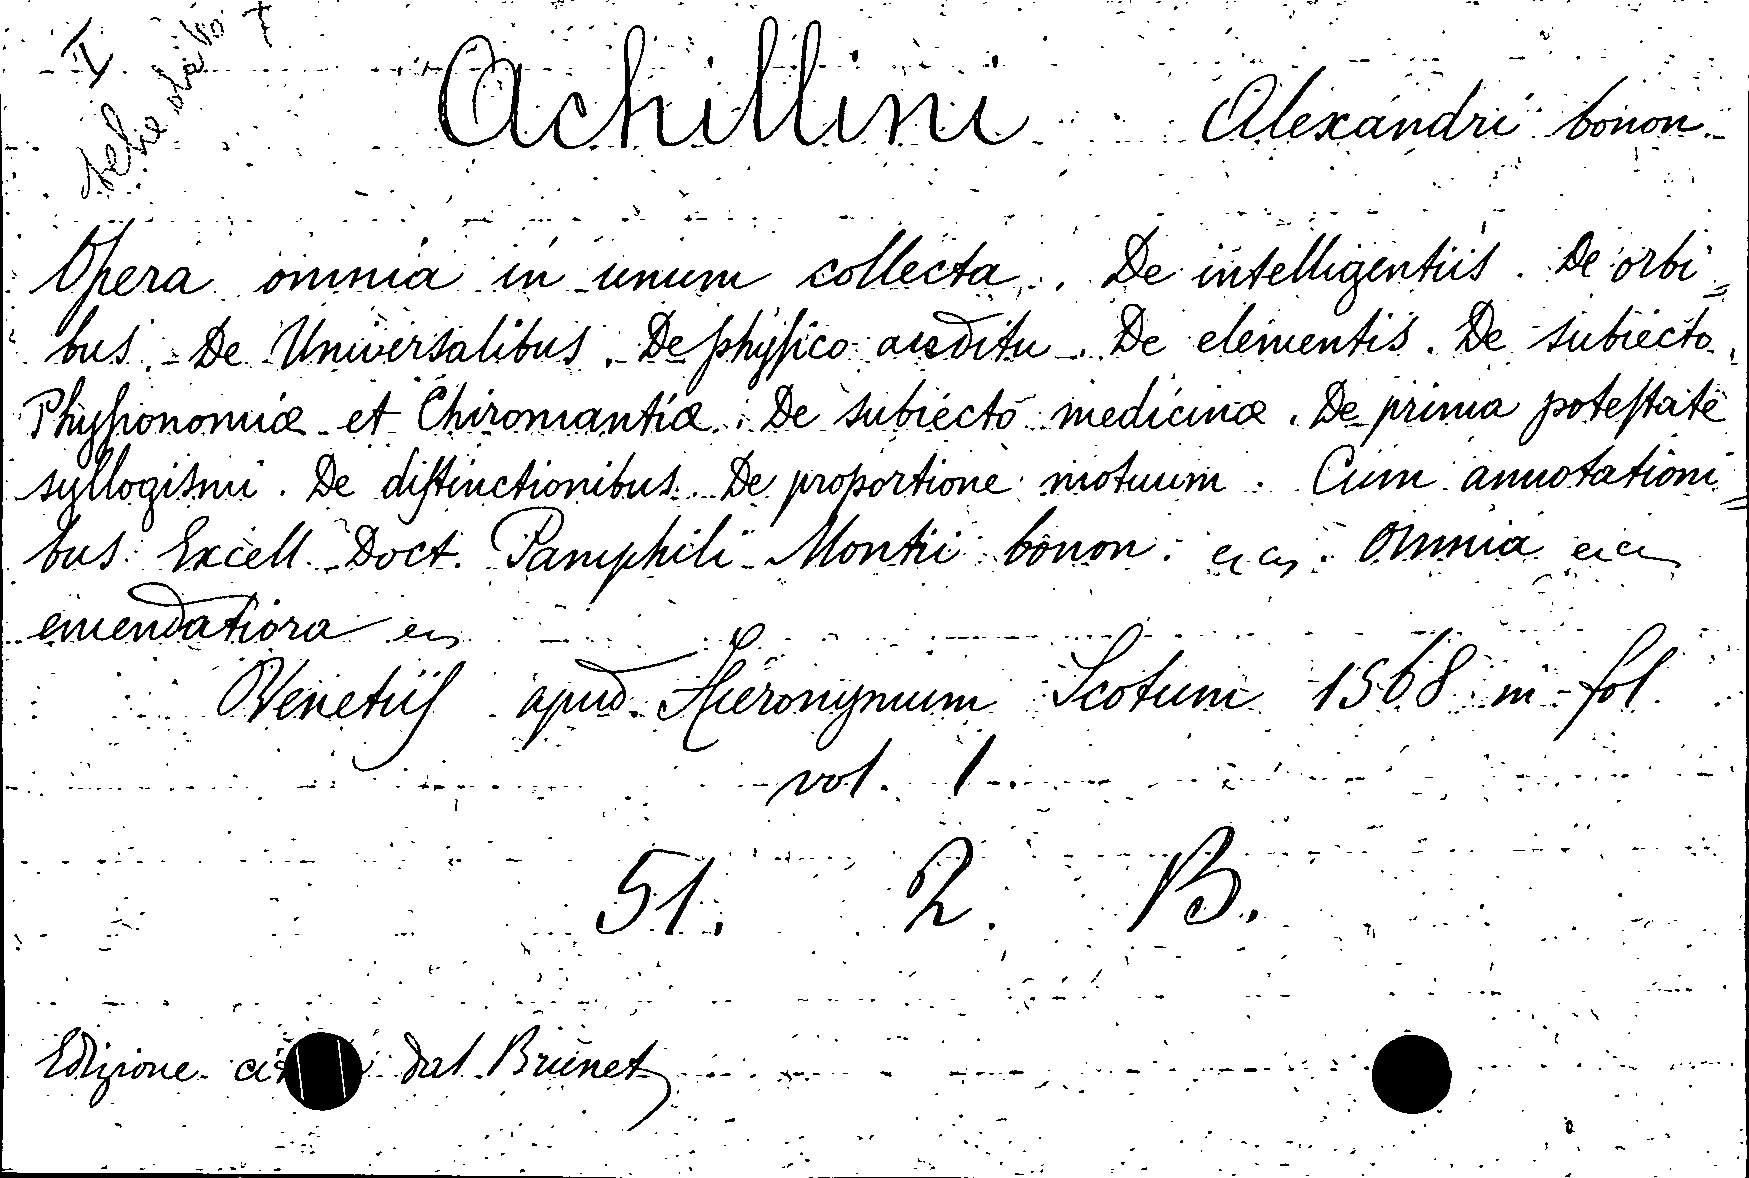 I
schedato
Achillini Alexandri bonon.
Opera omnia in unum collecta. De intelligentiis. De orbi=
bus. De Universalibus. De physico auditu. De elementis. De subiecto
Physionomiæ et Chiromantiæ. De subiecto medicinæ. De prima potestate
syllogismi. De distinctionibus. De proportione motuum. Cum annotationi=
bus Excell. Doct. Pamphili Montii bonon. Omnia
emendatiora
Venetiis apud Hieronymum Scotum 1568 in-fol.
vol. 1.
51. 2. B.
Edizione dal Brunet